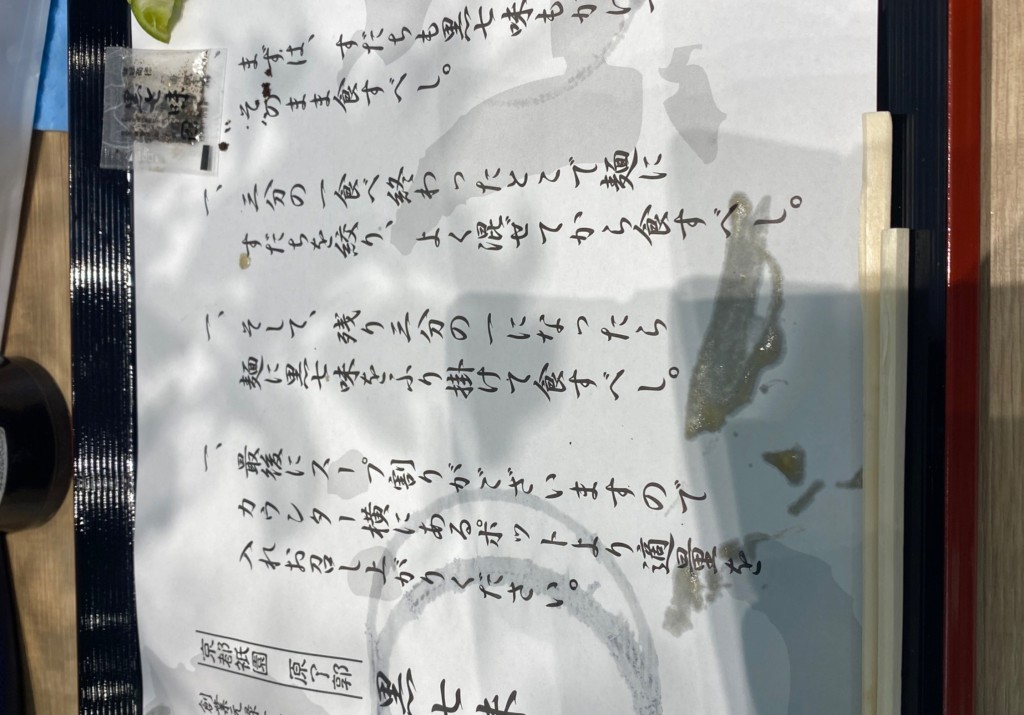 まずは、すだちも黒七味もかけ
そのまま食すべし。
一、三分の一食べ終わったところで麺に
すだちを絞り、よく混ぜてから食すべし。
一、そして、残り三分の一になったら
麺に黒七味をふり掛けて食すべし。
一、最後にスープ割りがございますので
カウンター横にあるポットより適量を
入れお召し上がりください。
京都祇園
原了郭
黒七味
黒七味